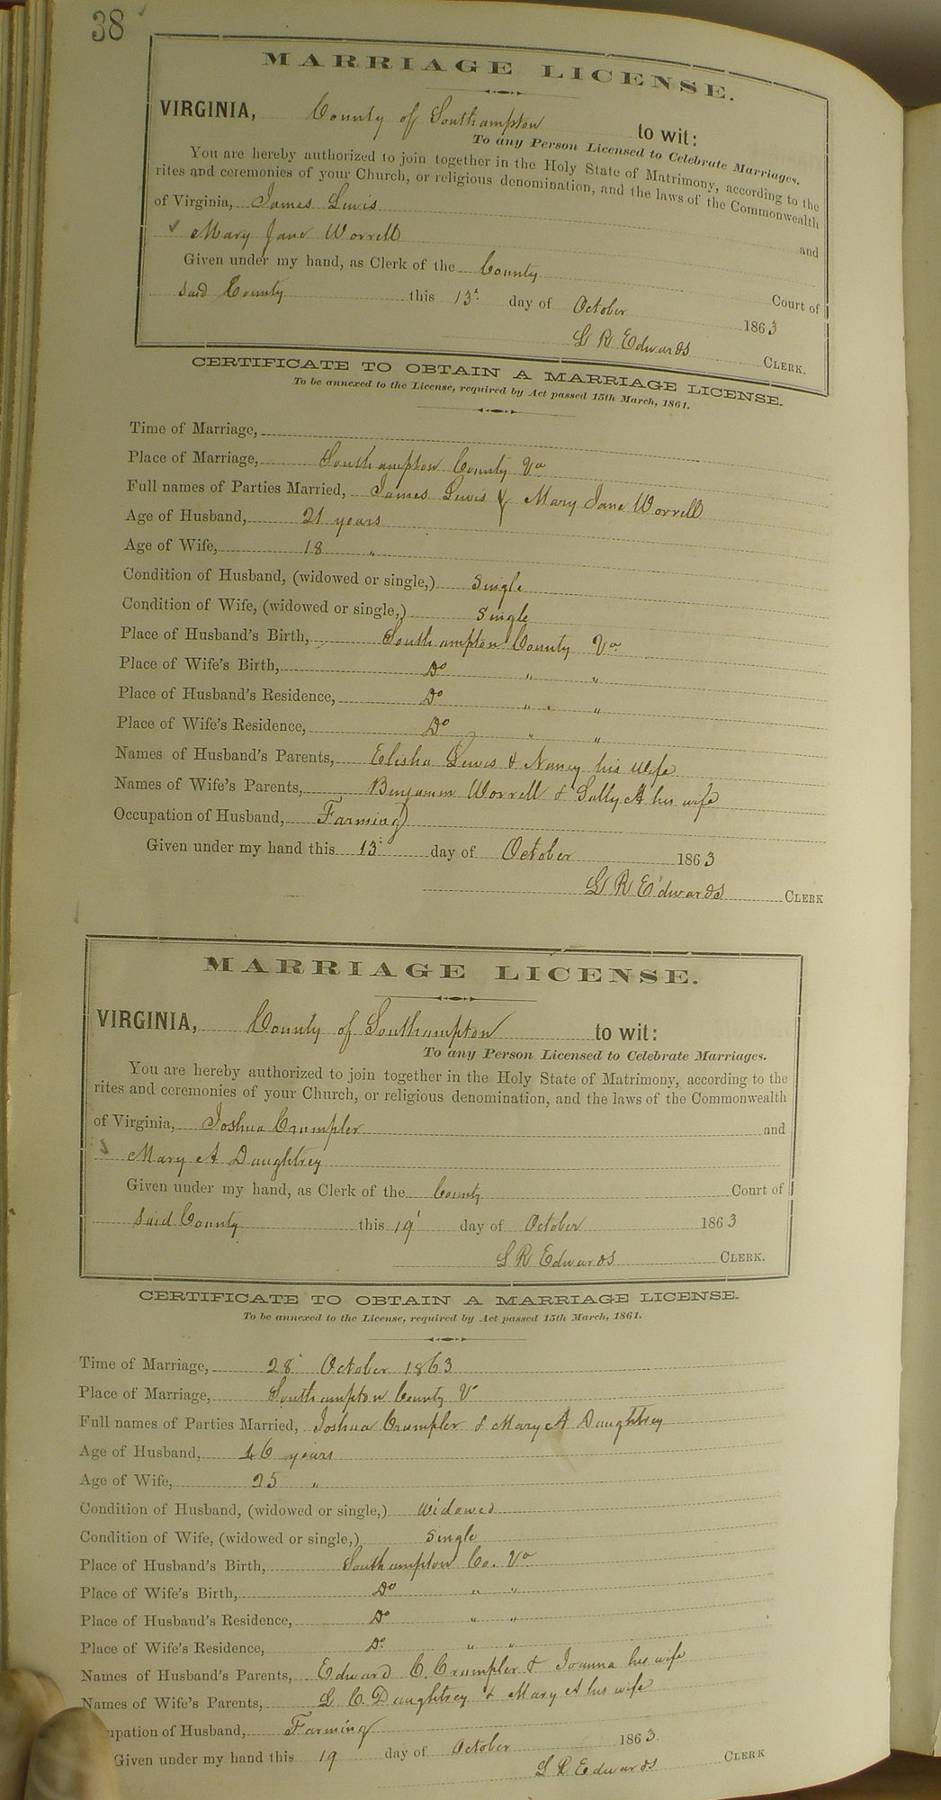 38
MARRIAGE LICENSE.
VIRGINIA, County of Southampton to wit:
To any Person Licensed to Celebrate Marriages.
You are hereby authorized to join together in the Holy State of Matrimony, according to the
rites and ceremonies of your Church, or religious denomination, and the laws of the Commonwealth
of Virginia, James Lewis and
Mary Jane Worrell
Given under my hand, as Clerk of the County Court of
said County this 13 day of October 1863
L R Edwards CLERK.
CERTIFICATE TO OBTAIN A MARRIAGE LICENSE.
To be annexed to the License, required by Act passed 15th March, 1861.
Time of Marriage,
Place of Marriage, Southampton County Va
Full names of Parties Married, James Lewis & Mary Jane Worrell
Age of Husband, 21 years
Age of Wife, 18 "
Condition of Husband, (widowed or single,) Single
Condition of Wife, (widowed or single,) Single
Place of Husband's Birth, Southampton County Va
Place of Wife's Birth, Do " "
Place of Husband's Residence, Do " "
Place of Wife's Residence, Do " "
Names of Husband's Parents, Elisha Lewis & Nancy his wife
Names of Wife's Parents, Benjamin Worrell & Sally A his wife
Occupation of Husband, Farming
Given under my hand this 13 day of October 1863
L R Edwards CLERK
MARRIAGE LICENSE.
VIRGINIA, County of Southampton to wit:
To any Person Licensed to Celebrate Marriages.
You are hereby authorized to join together in the Holy State of Matrimony, according to the
rites and ceremonies of your Church, or religious denomination, and the laws of the Commonwealth
of Virginia, Joshua Crumpler and
Mary A Daughtrey
Given under my hand, as Clerk of the County Court of
said County this 19 day of October 1863
L R Edwards CLERK.
CERTIFICATE TO OBTAIN A MARRIAGE LICENSE.
To be annexed to the License, required by Act passed 15th March, 1861.
Time of Marriage, 28 October 1863
Place of Marriage, Southampton County V
Full names of Parties Married, Joshua Crumpler & Mary A Daughtrey
Age of Husband, 46 years
Age of Wife, 25 "
Condition of Husband, (widowed or single,) Widowed
Condition of Wife, (widowed or single,) Single
Place of Husband's Birth, Southampton Co. Va
Place of Wife's Birth, Do " "
Place of Husband's Residence, Do " "
Place of Wife's Residence, Do " "
Names of Husband's Parents, Edward C. Crumpler & Joanna his wife
Names of Wife's Parents, L C Daughtrey & Mary A his wife
upation of Husband, Farming
Given under my hand this 19 day of October 1863
L R Edwards CLERK